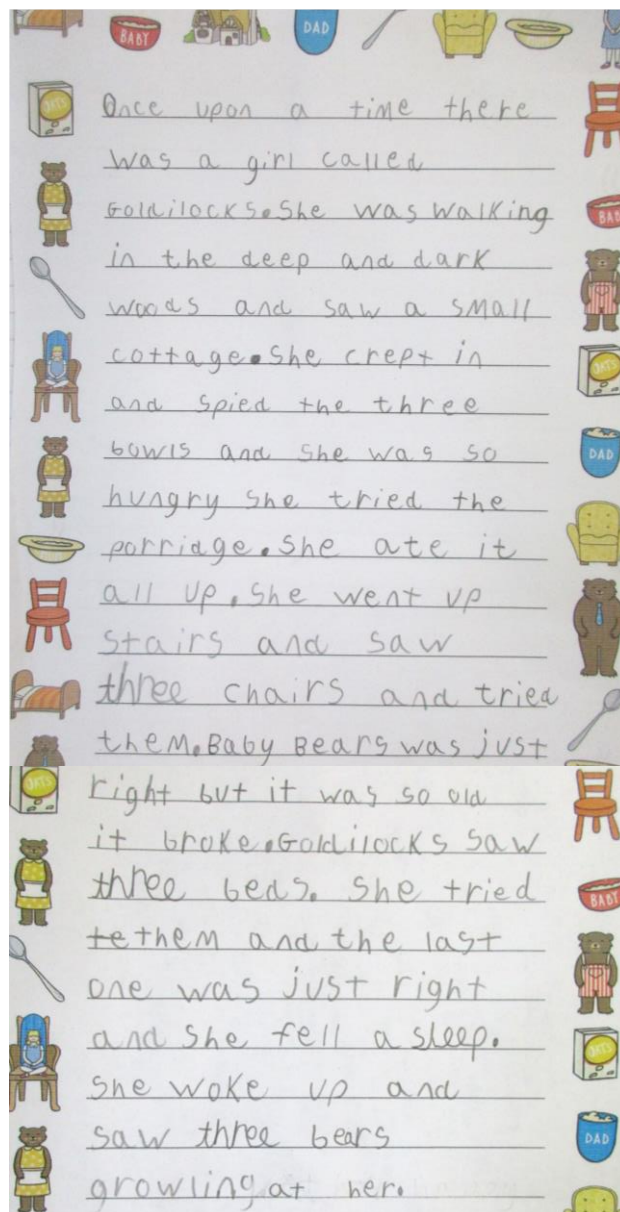 BABY
DAD
OATS
Once upon a time there
was a girl called
Goldilocks. She was walking
in the deep and dark
woods and saw a small
cottage. She crept in
and spied the three
bowls and she was so
hungry she tried the
porridge. She ate it
all up. She went up
stairs and saw
three chairs and tried
them. Baby Bears was just
BABY
OATS
DAD
right but it was so old
it broke. Goldilocks saw
three beds. She tried
te them and the last
one was just right
and she fell a sleep.
She woke up and
saw three bears
growling at her.
OATS
BABY
OATS
DAD